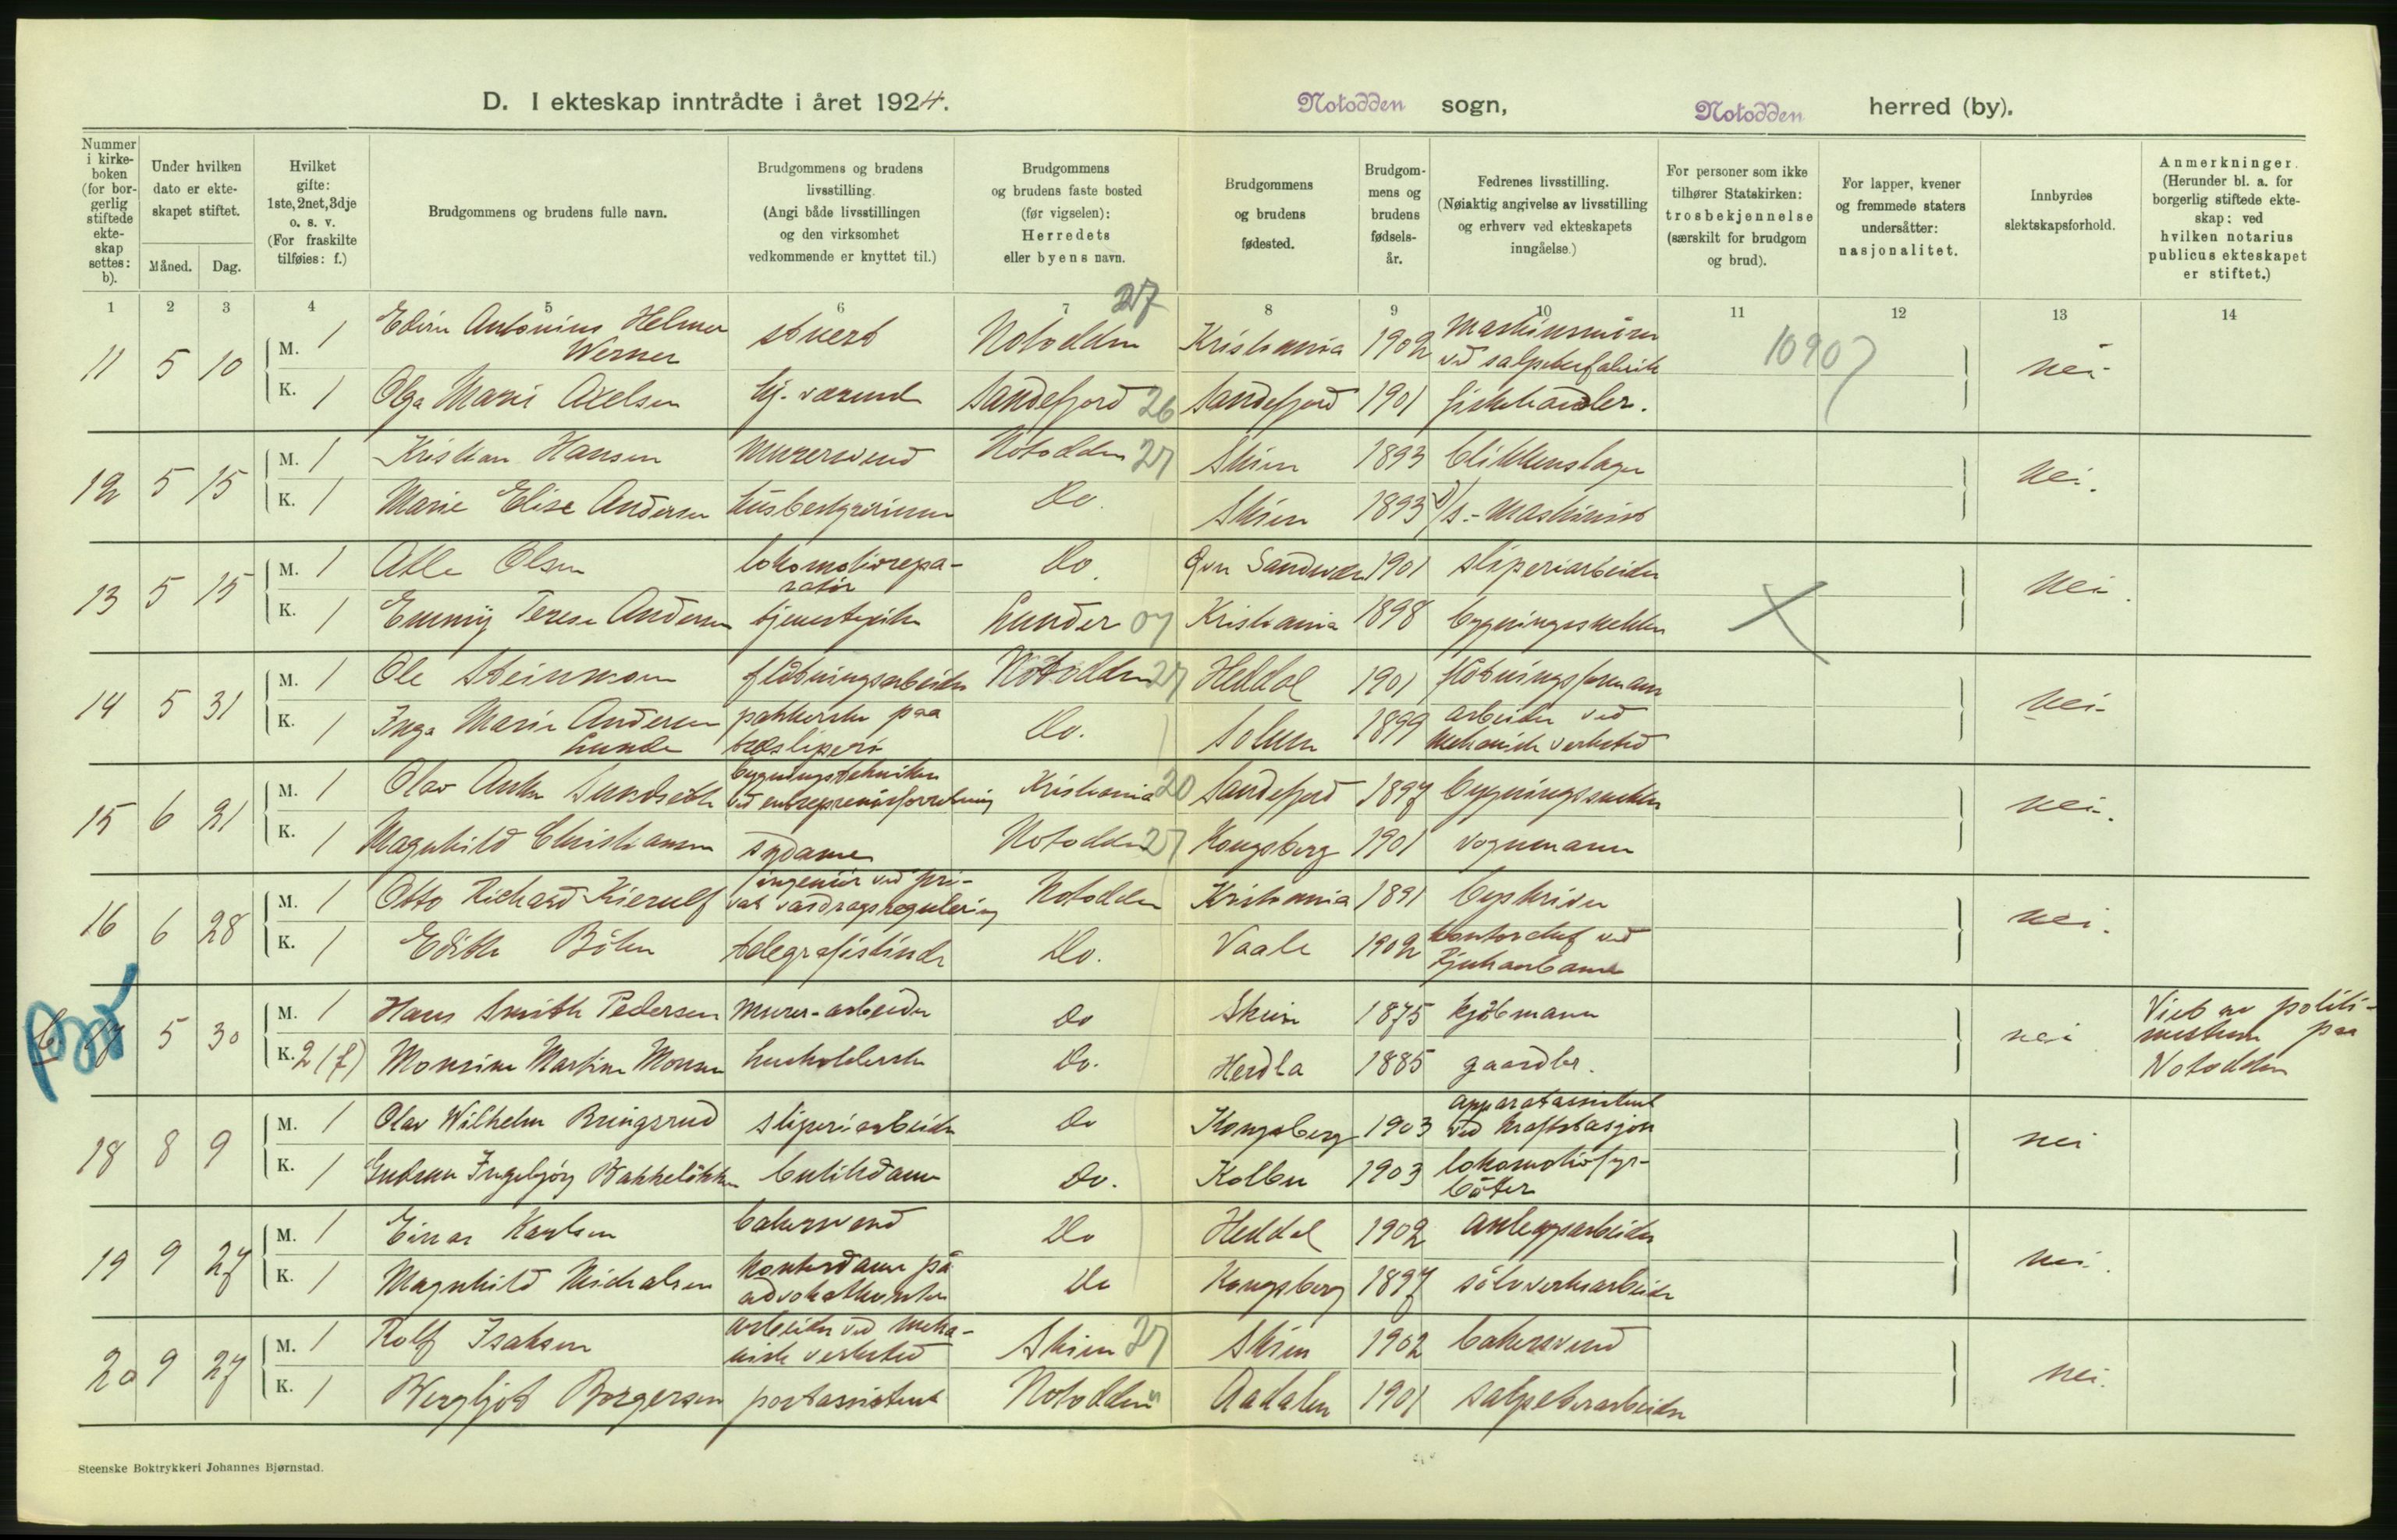 D. I ekteskap inntrådte i året 1924.
Notodden sogn,
Notodden herred (by).
Nummer i kirke-boken (for bor-gerlig stiftede ekte-skap settes: b).
Under hvilken dato er ekte-skapet stiftet.
Måned. Dag.
Hvilket gifte: 1ste, 2net, 3dje o. s. v. (For fraskilte tilføies: f.)
Brudgommens og brudens fulle navn.
Brudgommens og brudens livsstilling. (Angi både livsstillingen og den virksomhet vedkommende er knyttet til.)
Brudgommens og brudens faste bosted (før vigselen): Herredets eller byens navn.
Brudgommens og brudens fødested.
Brudgom-mens og brudens fødsels-år.
Fedrenes livsstilling. (Nøiaktig angivelse av livsstilling og erhverv ved ekteskapets inngåelse.)
For personer som ikke tilhører Statskirken: trosbekjennelse (særskilt for brudgom og brud).
For lapper, kvener og fremmede staters undersåtter: nasjonalitet.
Innbyrdes slektskapsforhold.
Anmerkninger. (Herunder bl. a. for borgerlig stiftede ekte-skap: ved hvilken notarius publicus ekteskapet er stiftet.)
1 2 3 4 5 6 7 8 9 10 11 12 13 14
11 5 10 M. 1 Antonius Helmer Werner stuert Notodden 27 Kristiania 1902 ved salpeterfabrik 10907 nei
K. 1 Olga Marie Axelsen hj. værende Sandefjord 26 Sandefjord 1901 fiskehandler.
12 5 15 M. 1 Kristian Hansen murersvend Notodden 27 Skien 1893 blikkenslager nei.
K. 1 Marie Elise Andersen husbestyrerinne Do. Skien 1893 D/s.-maskinist
13 5 15 M. 1 Atle Olsen lokomotivrepa-ratør Do. Øvre Sandsvær 1901 sliperiarbeider nei.
K. 1 Emmy Terese Andersen tjenestepike Lunder 07 Kristiania 1898 bygningssnekker
14 5 31 M. 1 Ole Steinmoen fløtningsarbeider Notodden 27 Heddal 1901 fløtningsformann nei.
K. 1 Inga Marie Andersen Lunde pakkerske paa træsliperi Do. Solum 1899 arbeider ved mekanisk verksted
15 6 21 M. 1 Olav bygningstekniker ved entreprenørforretning Kristiania 20 Sandefjord 1897 bygningssnekker nei.
K. 1 Magnhild Christiansen sydame Notodden 27 Kongsberg 1901 vognmann
16 6 28 M. 1 Otto Richard Kierulf ingeniør ved pri-vat vasdragsregulering Notodden Kristiania 1891 byskriver nei.
K. 1 Edith Bøhn telegrafistinde Do. Vaale 1902 kontorchef ved Rjukanbanen
5 30 M. 1 Hans Smith Pedersen murer-arbeider Do Skien 1875 kjøbmann nei Viet av politi-mesteren paa Notodden
K. 2 (f) Monsine Martine Monsen husholderske Do. Herdla 1885 gaardbr.
18 8 9 M. 1 Olav Wilhelm Bringsrud sliperiarbeider Do Kongsberg 1903 apparatassistent ved kraftstasjon nei
K. 1 Gudrun Ingebjørg Bakkeløkken butikdame Do. Kolbu 1903 lokomotivfyr-bøter
19 9 27 M. 1 Einar Karlsen bakersvend Do Heddal 1902 anleggsarbeider nei.
K. 1 Magnhild Michalsen kontordame på advokatkontor Do Kongsberg 1897 sølvverksarbeider
20 9 27 M. 1 Rolf Isaksen arbeider ved meka-nisk verksted Skien 27 Skien 1902 bakersvend nei.
K. 1 Bergljot Borgersen postassistent Notodden Aadalen 1901 salpeterarbeider
Steenske Boktrykkeri Johannes Bjørnstad.